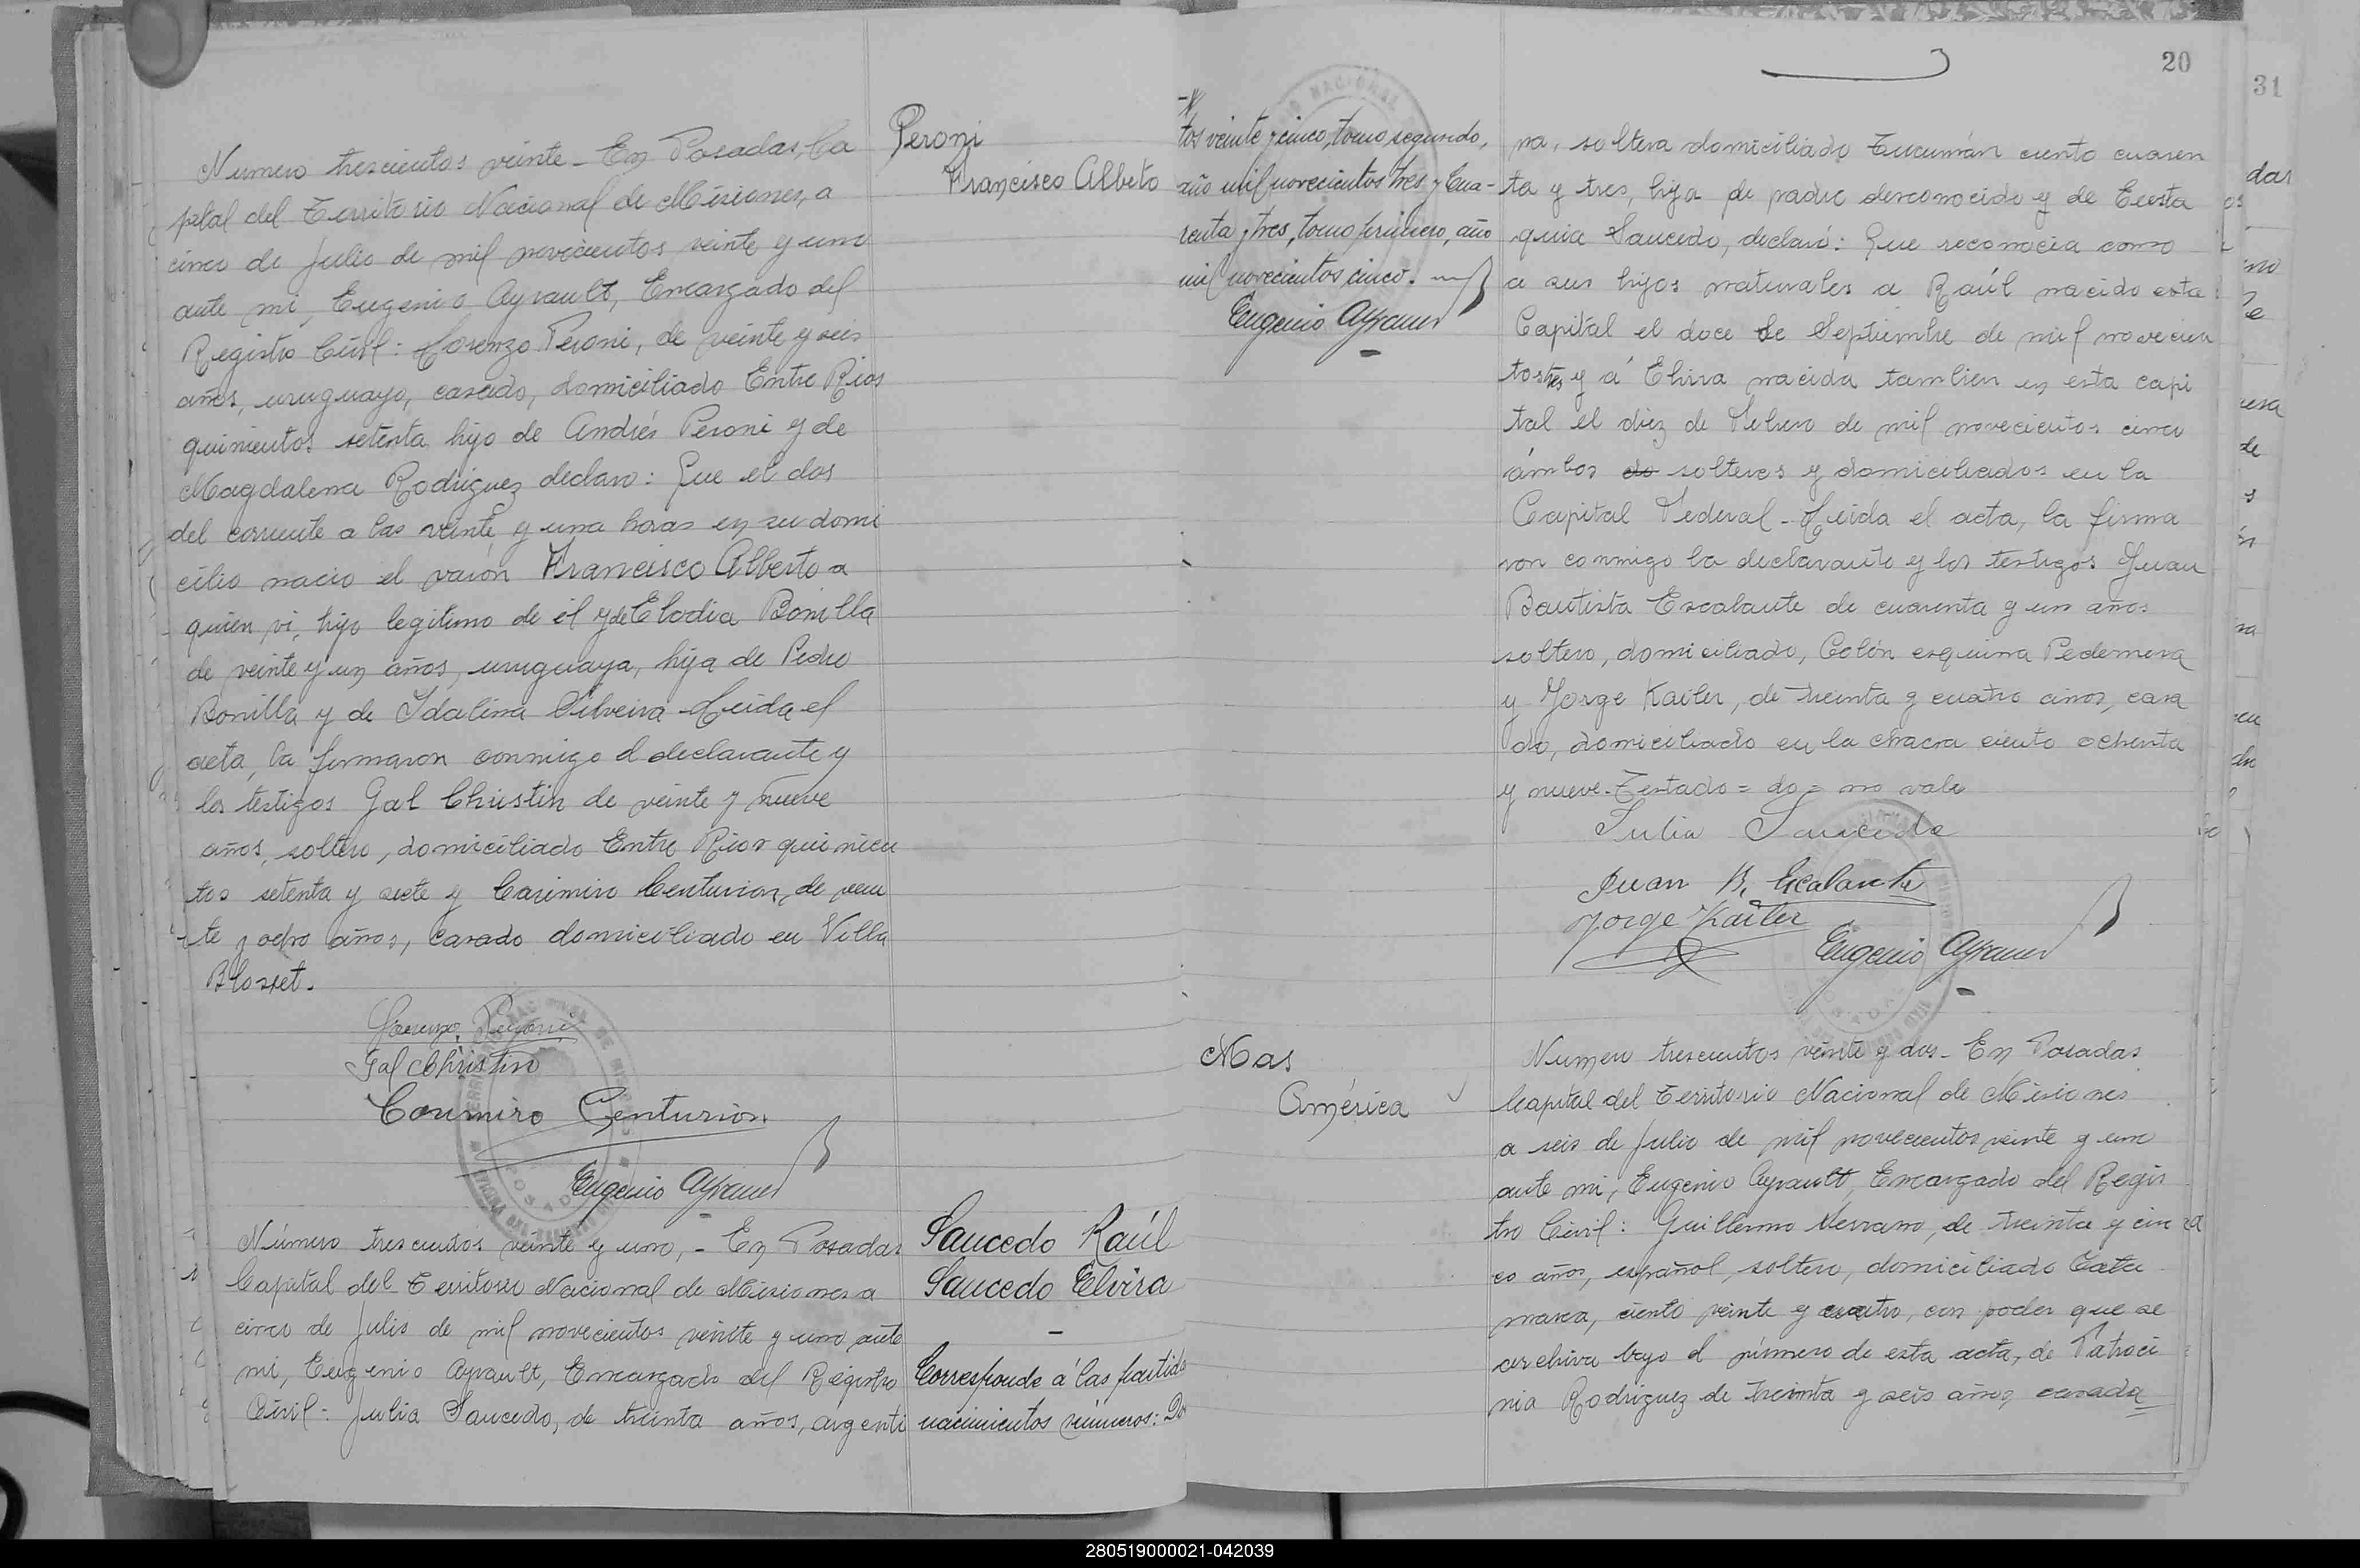 Peroni
Francisco Alberto
Numero trescientos veinte - En Posadas, Ca
pital del Territorio Nacional de Misiones, a
cinco de Julio de mil novecientos veinte y uno
ante mi, Eugenio Ayrault, Encargado del
Registro Civil: Lorenzo Peroni, de veinte y seis
años, uruguayo, casado, domiciliado Entre Rios
quinientos setenta hijo de Andrés Peroni y de
Magdalena Rodriguez declaro: Que el dos
del corriente a las veinte y una horas en su domi
cilio nacio el varón Francisco Alberto a
quien vi, hijo legitimo de él y de Elodia Bonilla
de veinte y un años, uruguaya, hija de Pedro
Bonilla y de Idalina Silveira - Leida el
acta, la firmaron conmigo el declarante y
los testigos Gal Christin de veinte y nueve
años, soltero, domiciliado Entre Rios quinien
tos setenta y siete y Casimiro Centurion, de vein
te y ocho años, casado domiciliado en Villa
Blosset.
Lorenzo Peroni
Gal Christin
Casimiro Centurion
Eugenio Ayrault
Saucedo Raúl
Saucedo Elvira
Corresponde á las partidas
nacimientos números: Dos
Número trescientos veinte y uno, - En Posadas
Capital del Territorio Nacional de Misiones a
cinco de Julio de mil novecientos veinte y uno ante
mi, Eugenio Ayrault, Encargado del Registro
Civil: Julia Saucedo, de treinta años, argenti
20
31
tos veinte y cinco, tomo segundo,
año mil novecientos tres y Cua-
renta y tres, tomo primero, año
mil novecientos cinco.
Eugenio Ayrault
na, soltera domiciliado Tucumán ciento cuaren
ta y tres, hija de padre desconocido y de Eusta
quia Saucedo, declaró: Que reconocia como
a sus hijos naturales a Raúl nacido esta
Capital el doce de Septiembre de mil novecien
tos tres y á Elvira nacida tambien en esta capi
tal el diez de Febrero de mil novecientos cinco
ámbos do solteros y domiciliados en la
Capital Federal - Leida el acta, la firma
ron conmigo la declarante y los testigos Juan
Bautista Escalante de cuarenta y un años
soltero, domiciliado, Colón esquina Pedernera
y Jorge Kailer, de treinta y cuatro años, casa
do, domiciliado en la chacra ciento ochenta
y nueve - Testado = do = no vale
Julia Saucedo
Juan B. Escalante
Jorge Kailer
Eugenio Ayrault
Mas
América
Numero trescientos veinte y dos - En Posadas
Capital del Territorio Nacional de Misiones
a seis de Julio de mil novecientos veinte y uno
ante mi, Eugenio Ayrault, Encargado del Regis
tro Civil: Guillermo Serrano, de treinta y cin
co años, español, soltero, domiciliado Cata
marca, ciento veinte y cuatro, con poder que se
archiva bajo el número de esta acta, de Patroci
nia Rodriguez de treinta y seis años, casada
280519000021-042039